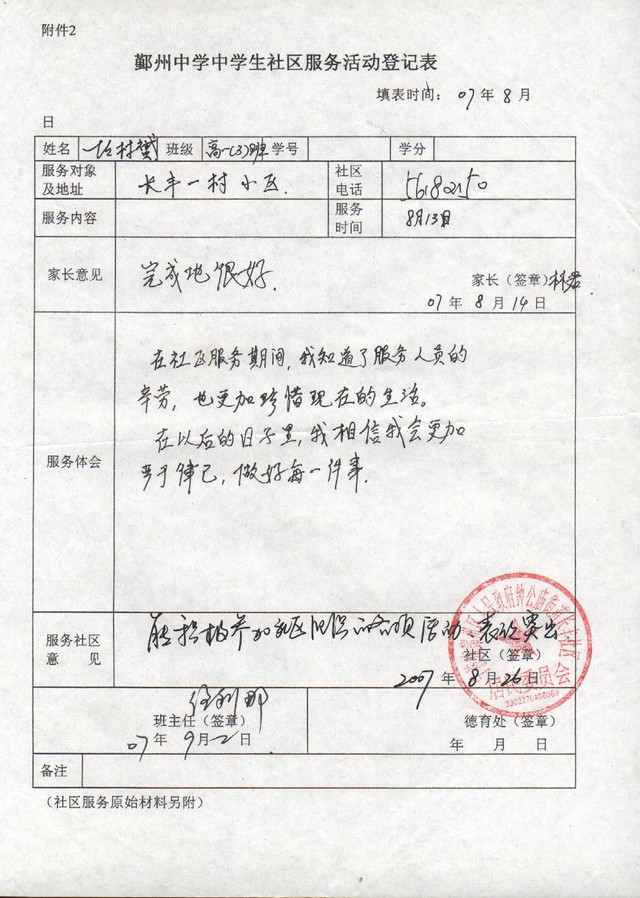 附件2
鄞州中学中学生社区服务活动登记表
填表时间：07年8月
日
姓名 班级 高一(3)班 学号 学分
服务对象及地址 长丰一村小区. 社区电话 56182150
服务内容 服务时间 8月13日
家长意见 完成地很好.
家长（签章）林君
07年8月14日
在社区服务期间,我知道了服务人员的
辛劳，也更加珍惜现在的生活。
服务体会
在以后的日子里,我相信我会更加
严于律己,做好每一件事.
服务社区意见 能积极参加社区组织的各项活动 表现突出
社区（签章）
2007年8月26日
居民委员会
3302270406069
班主任（签章） 德育处（签章）
07年9月2日 年 月 日
备注
（社区服务原始材料另附）